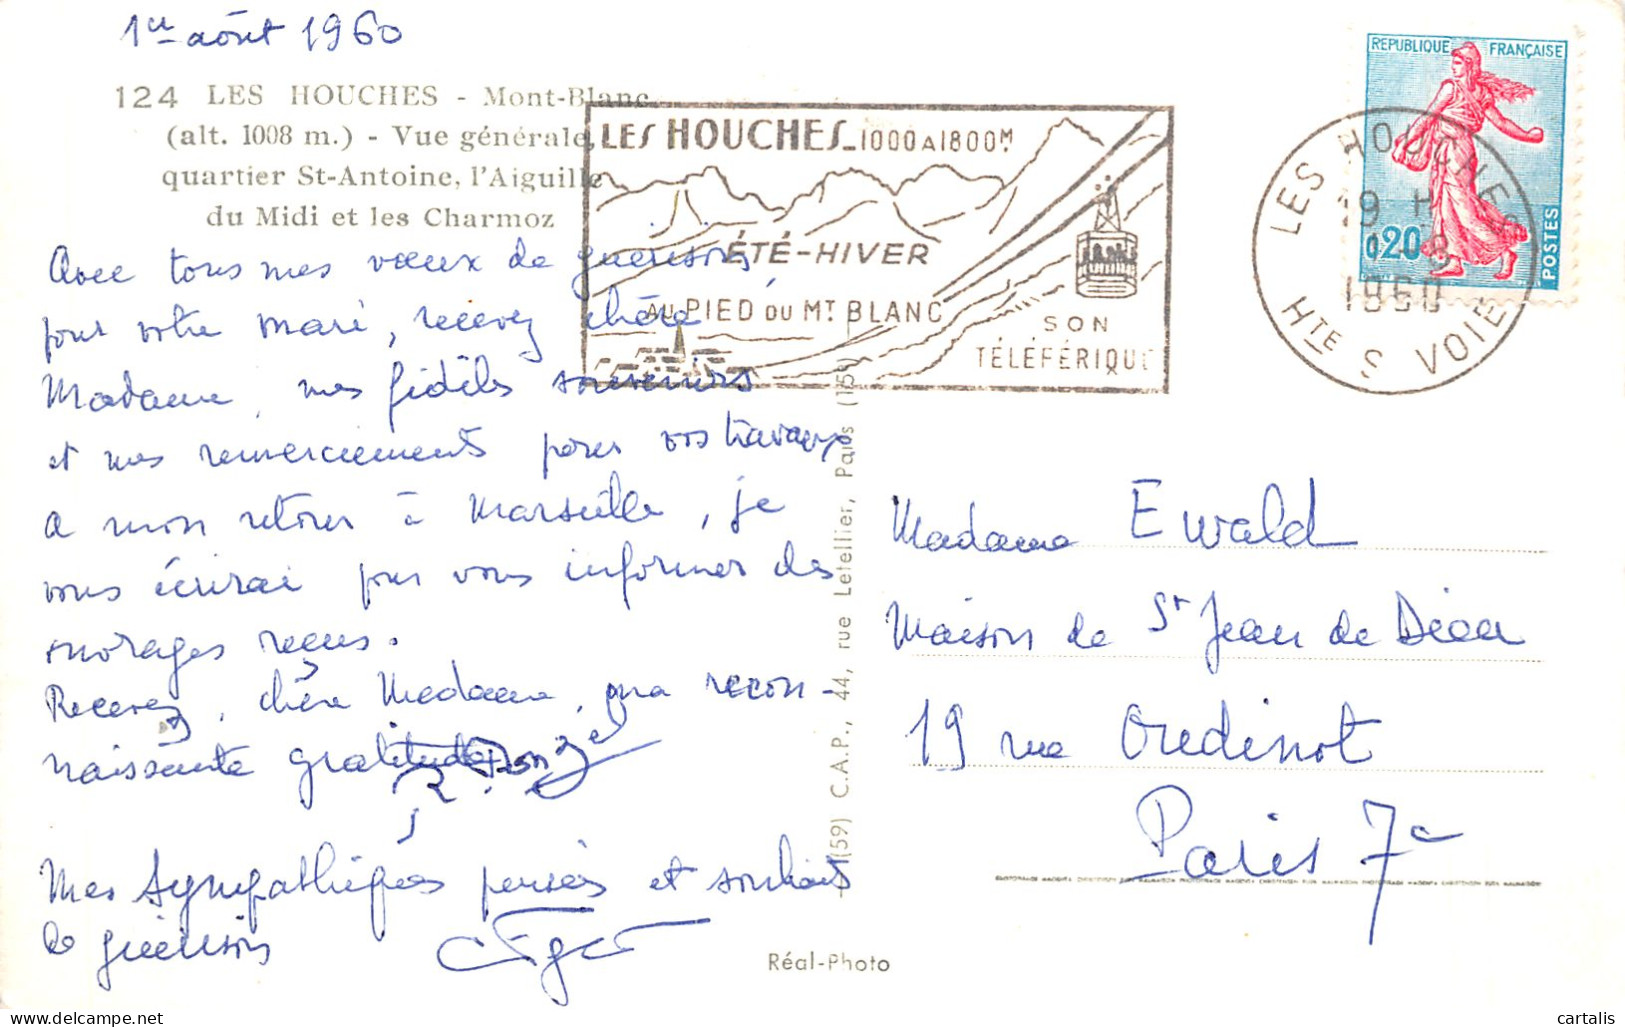 1er août 1960
124 LES HOUCHES - Mont-Blanc
(alt. 1008 m.) - Vue générale,
quartier St-Antoine, l'Aiguille
du Midi et les Charmoz
LES HOUCHES_1000 A 1800M
ÉTÉ-HIVER
AU PIED DU MT BLANC
SON
TÉLÉFÉRIQUE
REPUBLIQUE FRANÇAISE
0,20
POSTES
LES HOUCHES
19 H
1-8
1960
HTE SAVOIE
Avec tous mes vœux de guérison,
pour votre mari, recevez chère
Madame, mes fidèles souvenirs
et mes remerciements pour vos travaux
A mon retour à Marseille, je
vous écrirai pour vous informer des
ouvrages reçus.
Recevez, chère Madame, ma recon-
naissante gratitude
Mes sympathiques pensées et souhaits
de guérison
Madame Ewald
Maison de St Jean de Dieu
19 rue Oudinot
Paris 7e
(59) C.A.P., 44, rue Letellier, Paris (15e)
Réal-Photo
cartalis